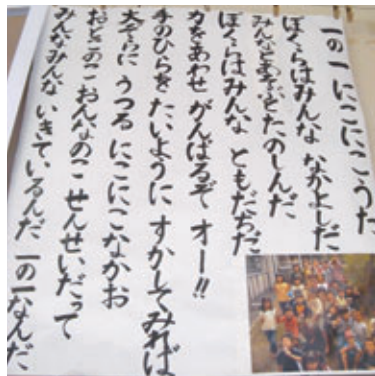 一の一 にこにこうた
ぼくらはみんな なかよしだ
みんなとあそぶとたのしんだ
ぼくらはみんな ともだちだ
力をあわせ がんばるぞ オー!!
手のひらを たいように すかしてみれば
大ぞらに うつる にこにこなかお
おとこのこ おんなのこ せんせいだって
みんなみんな いきているんだ 一の一なんだ